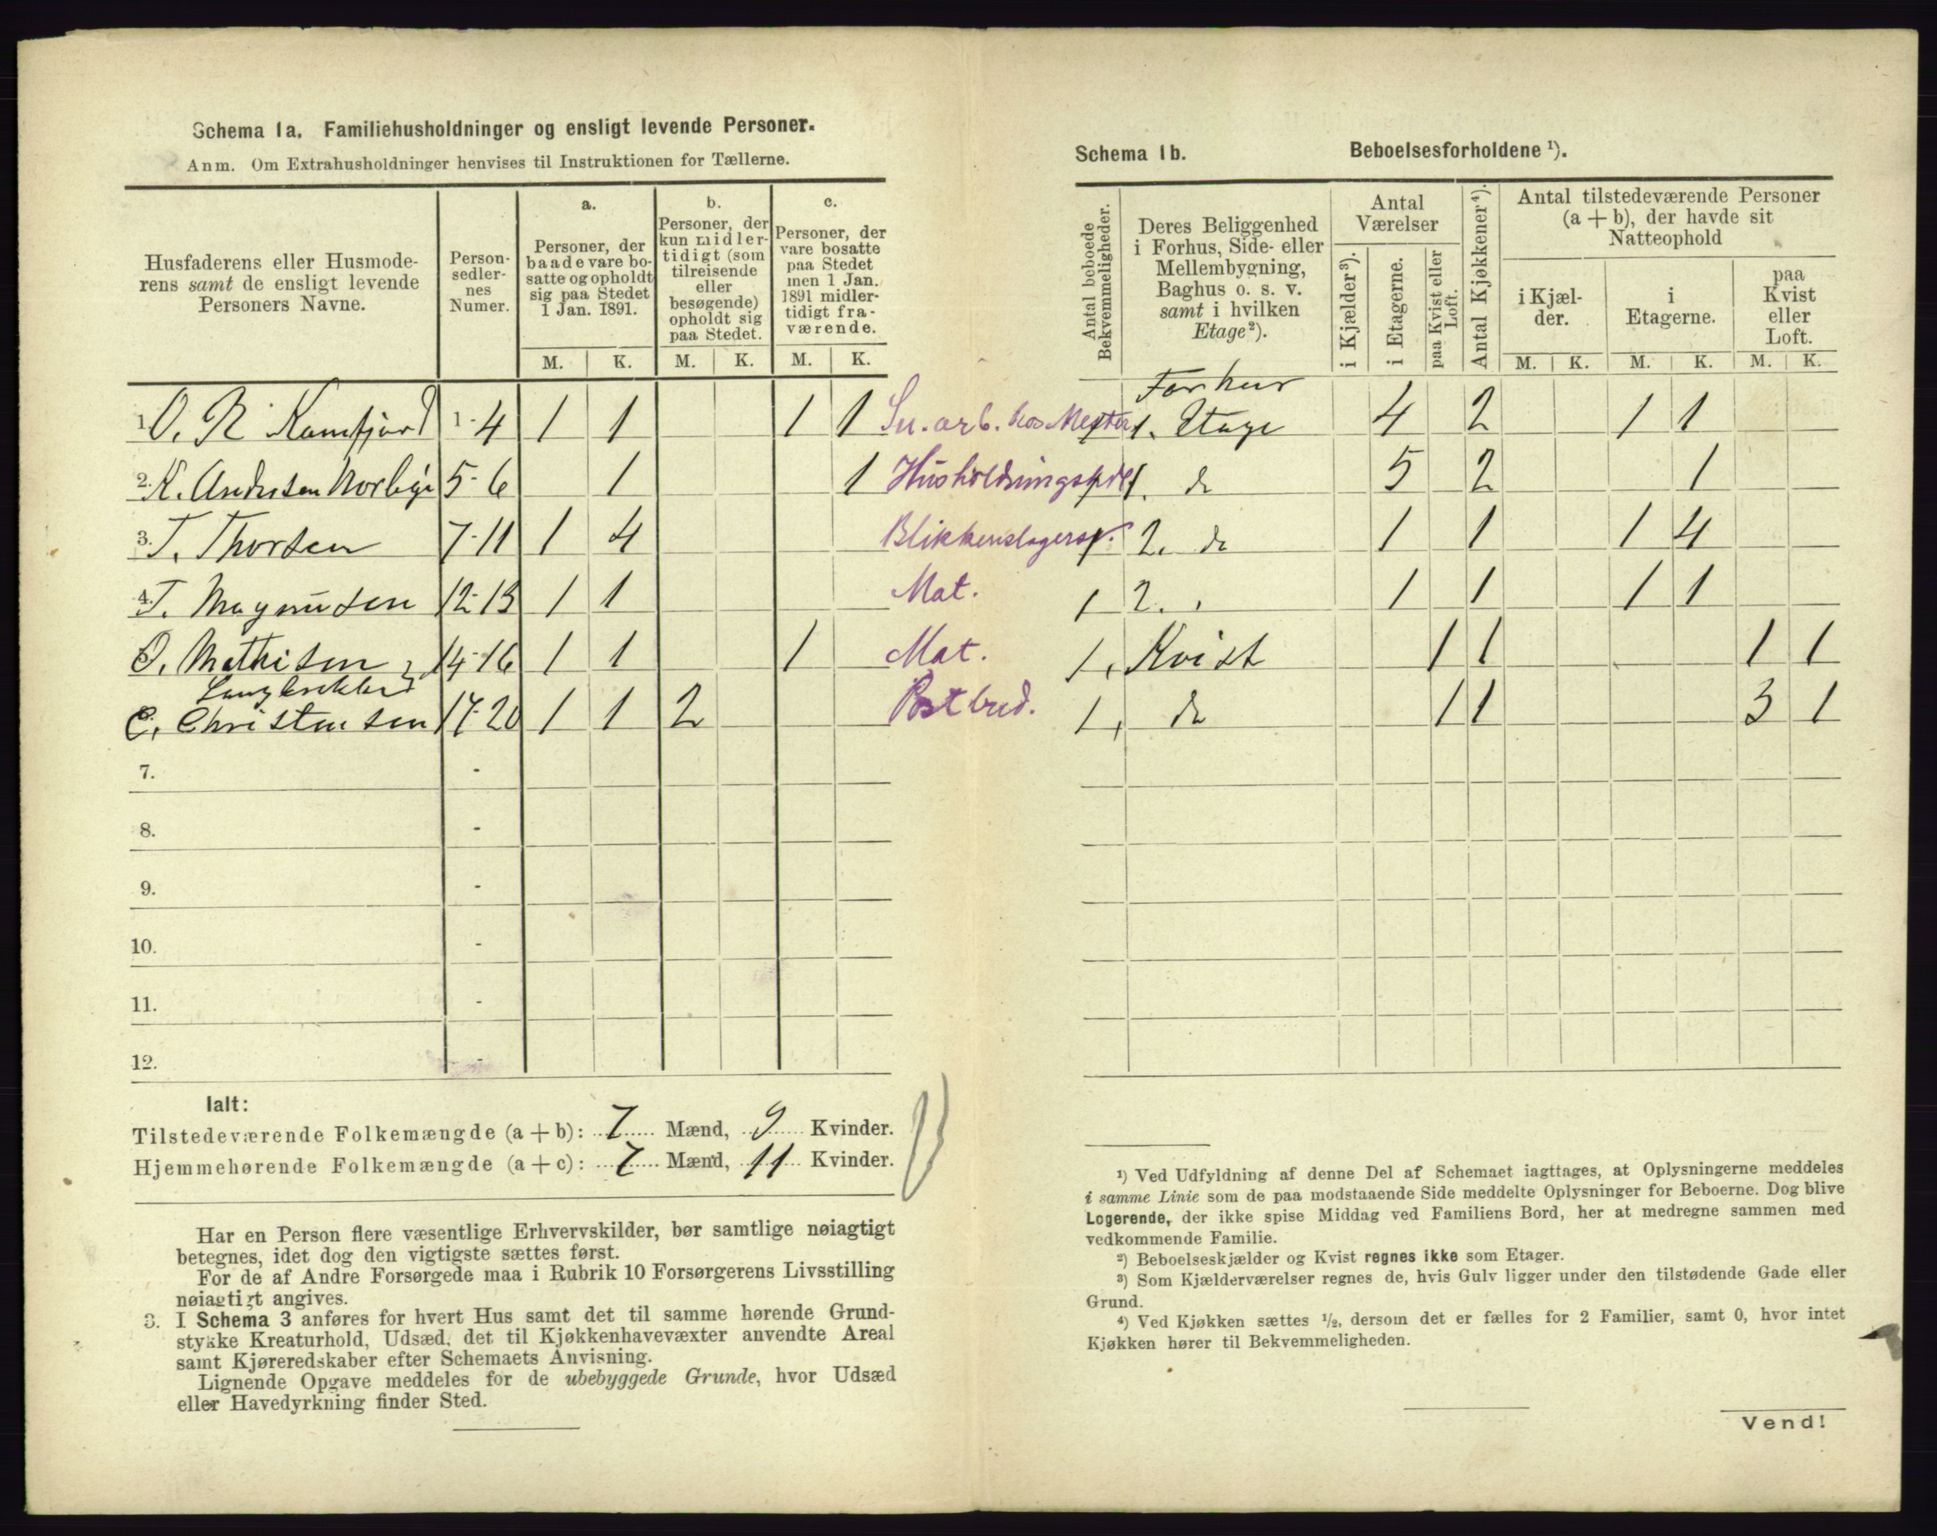 Schema 1a. Familiehusholdninger og ensligt levende Personer.
Anm. Om Extrahusholdninger henvises til Instruktionen for Tællerne.
Husfaderens eller Husmoderens samt de ensligt levende Personers Navne.
Personsedlernes Numer.
a.
Personer, der baade vare bosatte og opholdt sig paa Stedet 1 Jan. 1891.
b.
Personer, der kun midlertidigt (som tilreisende eller besøgende) opholdt sig paa Stedet.
c.
Personer, der vare bosatte paa Stedet men 1 Jan. 1891 midlertidigt fraværende.
M. K. M. K. M. K.
1. O. R Kamfjord 1-4 1 1 1 1
2. K. Andersen Norbye 5-6 1 1
3. T. Thorsen 7-11 1 4
4. T. Magnusen 12-13 1 1
O. Mathisen 14-16 1 1 1
C. Christensen 17-20 1 1 2
7. -
8. -
9. -
10. -
11. -
12. -
Ialt:
Tilstedeværende Folkemængde (a+b): 7 Mænd, 9 Kvinder.
Hjemmehørende Folkemængde (a+c): 7 Mænd, 11 Kvinder.
Har en Person flere væsentlige Erhvervskilder, bør samtlige nøiagtigt
betegnes, idet dog den vigtigste sættes først.
For de af Andre Forsørgede maa i Rubrik 10 Forsørgerens Livsstilling
nøiagtigt angives.
3. I Schema 3 anføres for hvert Hus samt det til samme hørende Grund-
stykke Kreaturhold, Udsæd, det til Kjøkkenhavevæxter anvendte Areal
samt Kjøreredskaber efter Schemaets Anvisning.
Lignende Opgave meddeles for de ubebyggede Grunde, hvor Udsæd
eller Havedyrkning finder Sted.
Schema 1b. Beboelsesforholdene ¹).
Antal beboede Bekvemmeligheder.
Deres Beliggenhed i Forhus, Side- eller Mellembygning, Baghus o. s. v. samt i hvilken Etage²).
Antal Værelser
i Kjælder³).
i Etagerne.
paa Kvist eller Loft.
Antal Kjøkkener⁴).
Antal tilstedeværende Personer (a+b), der havde sit Natteophold
i Kjælder.
i Etagerne.
paa Kvist eller Loft.
M. K. M. K. M. K.
Forhus
Sn. arb. hos Mester 1 1. Etage 4 2 1 1
1. do 5 2 1
Blikkenslagersv. 1 2. do 1 1 1 4
Mat. 1 2. " 1 1 1 1
Mat. 1, Kvist 1 1 1 1
Postbud. 1, do 1 1 3 1
¹) Ved Udfyldning af denne Del af Schemaet iagttages, at Oplysningerne meddeles
i samme Linie som de paa modstaaende Side meddelte Oplysninger for Beboerne. Dog blive
Logerende, der ikke spise Middag ved Familiens Bord, her at medregne sammen med
vedkommende Familie.
²) Beboelseskjælder og Kvist regnes ikke som Etager.
³) Som Kjælderværelser regnes de, hvis Gulv ligger under den tilstødende Gade eller
Grund.
⁴) Ved Kjøkken sættes ½, dersom det er fælles for 2 Familier, samt 0, hvor intet
Kjøkken hører til Bekvemmeligheden.
Vend!